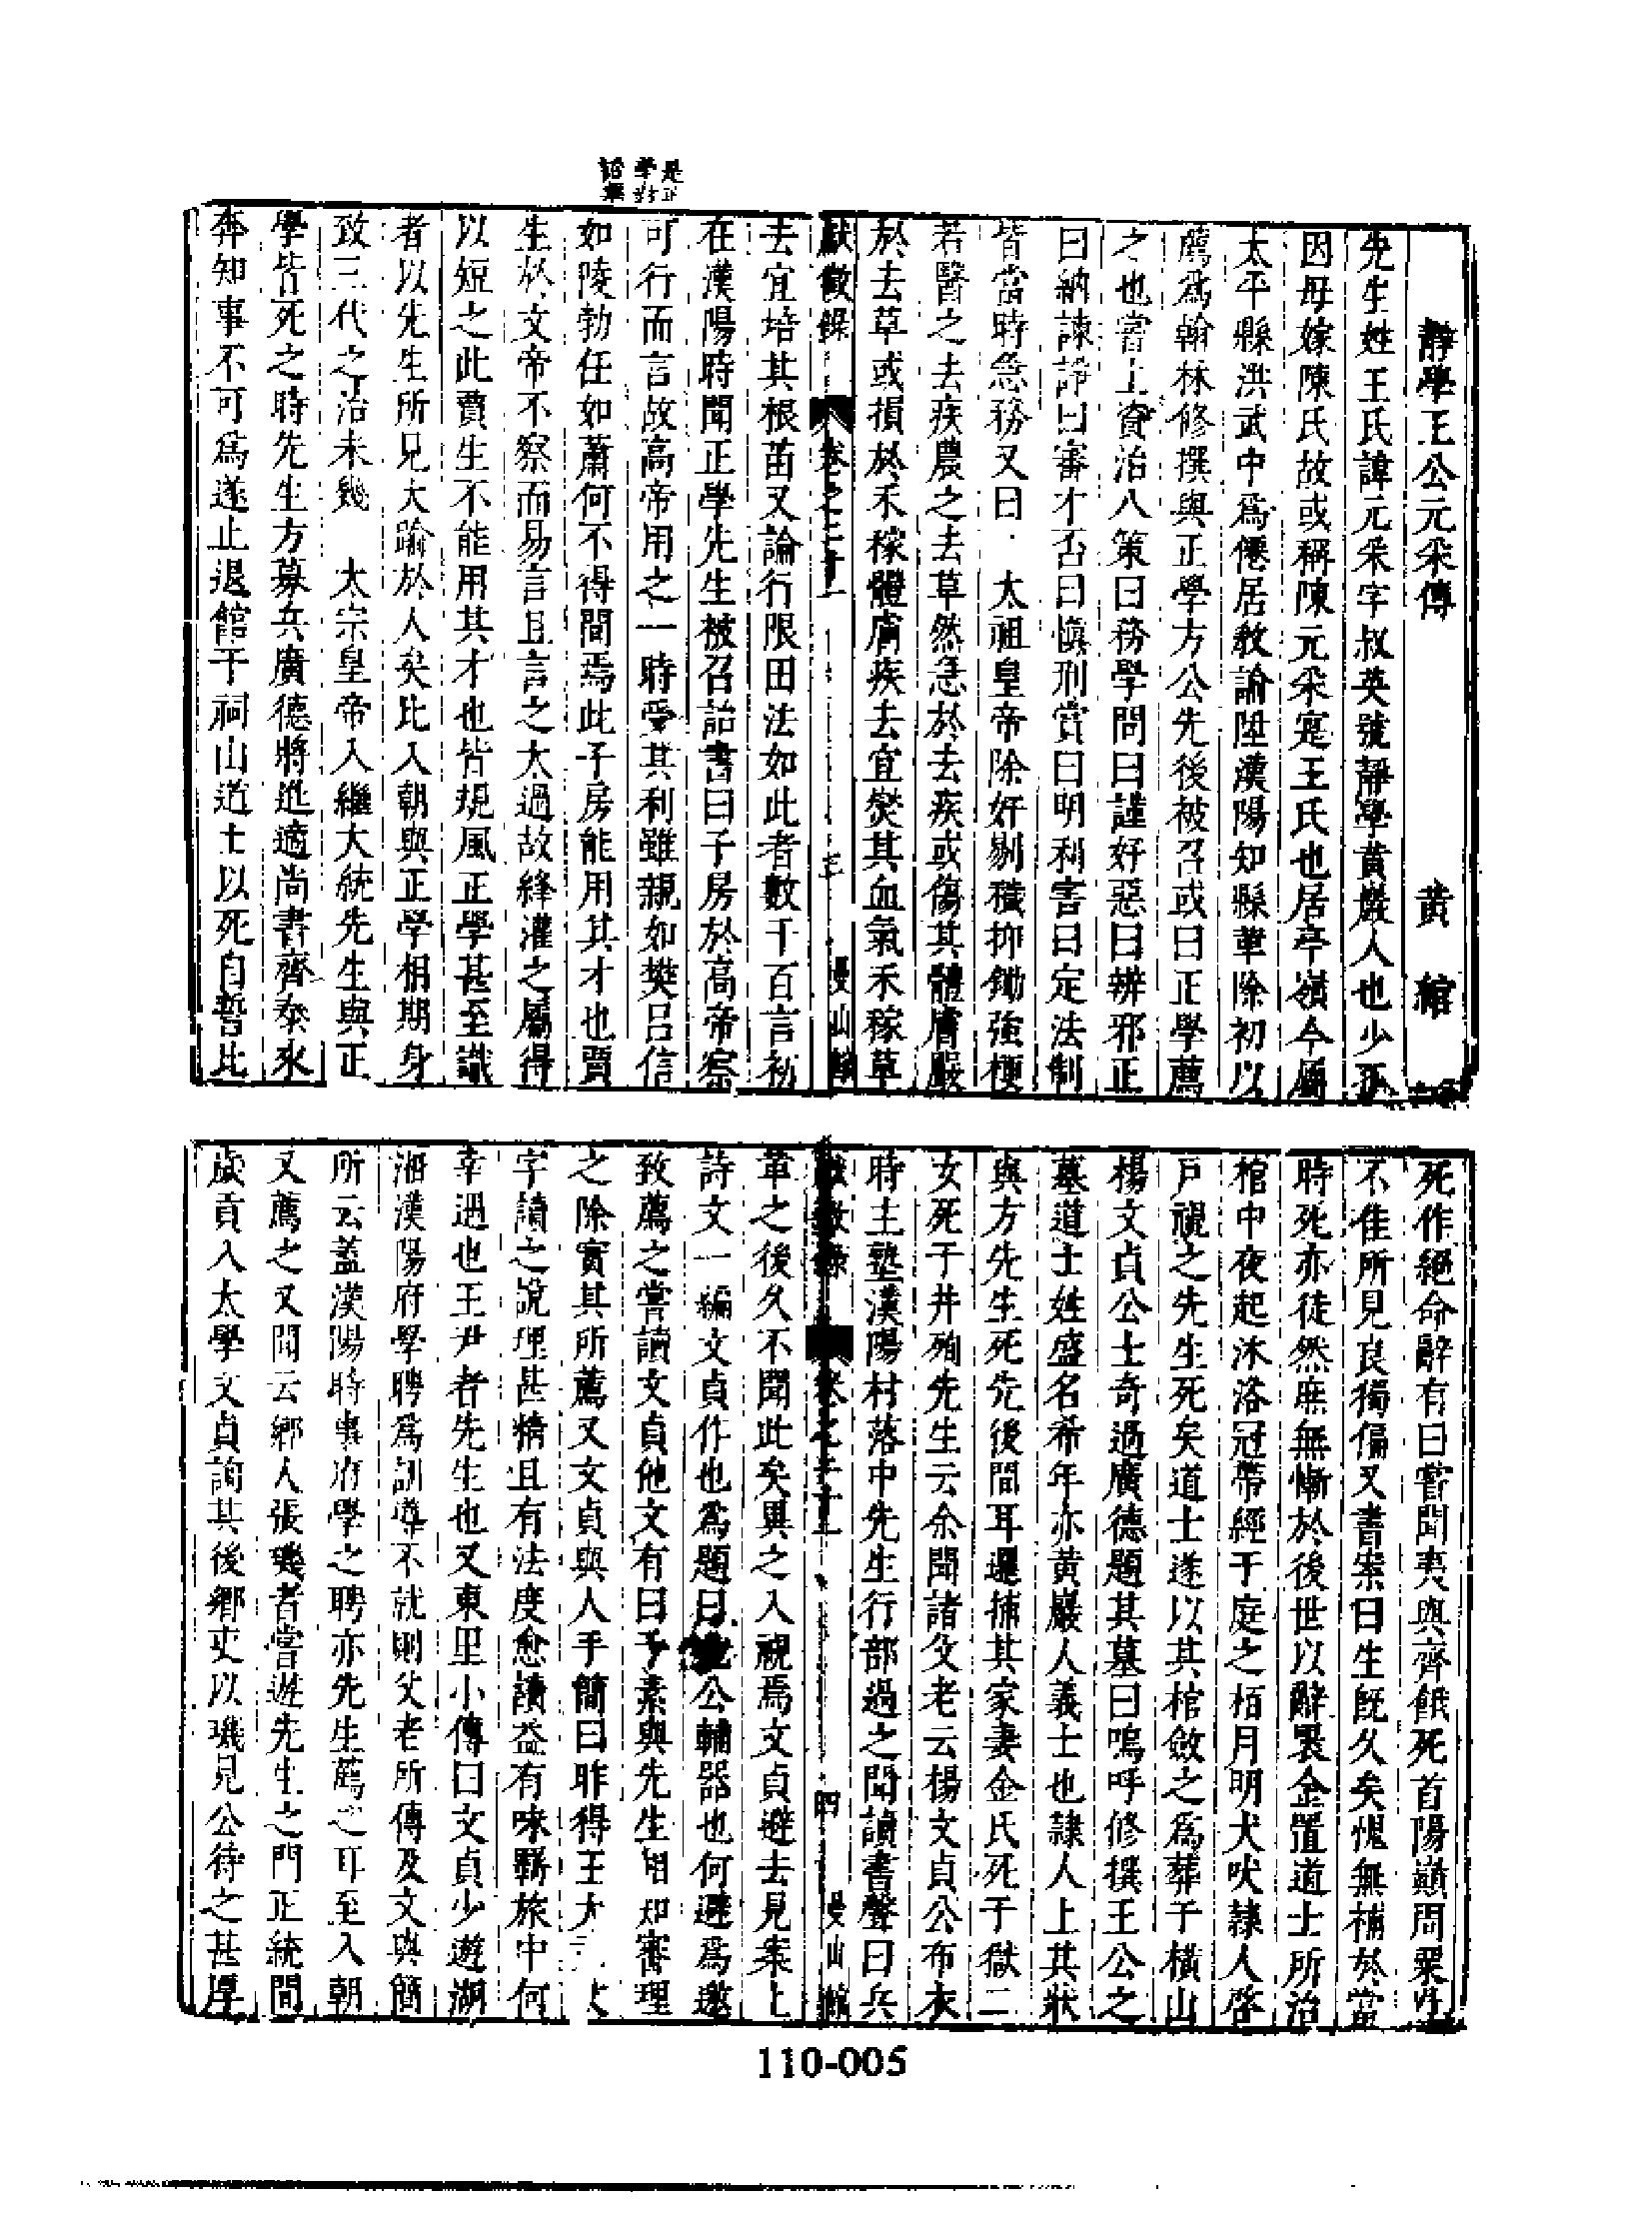 是正
學對
詔舉
靜學王公元采傳　黃綰
先生姓王氏諱元采字叔英號靜學黃巖人也少孤
因母嫁陳氏故或稱陳元采寔王氏也居亭嶺今屬
太平縣洪武中爲僊居教諭陞漢陽知縣革除初以
薦爲翰林修撰與正學方公先後被召或曰正學薦
之也嘗上資治八策曰務學問曰謹好惡曰辨邪正
曰納諫諍曰審才否曰慎刑賞曰明利害曰定法制
皆當時急務又曰　太祖皇帝除奸剔穢抑鋤強梗
若醫之去疾農之去草然急於去疾或傷其體膚嚴
於去草或損於禾稼體膚疾去宜燮其血氣禾稼草
獻徵錄　卷之二十　三　曼山館
去宜培其根苗又論行限田法如此者數千百言初
在漢陽時聞正學先生被召詒書曰子房於高帝察
可行而言故高帝用之一時受其利雖親如樊呂信
如陵勃任如蕭何不得間焉此子房能用其才也賈
生於文帝不察而易言且言之太過故絳灌之屬得
以短之此賈生不能用其才也皆規風正學甚至識
者以先生所見大踰於人矣比入朝與正學相期身
致三代之治未幾　太宗皇帝入繼大統先生與正
學皆死之時先生方募兵廣德將進適尚書齊泰來
奔知事不可爲遂止退館于祠山道士以死自誓比
死作絕命辭有曰嘗聞夷與齊餓死首陽巔周粟豈
不佳所見良獨偏又書案曰生旣久矣愧無補於當
時死亦徒然庶無慚於後世以辭裹金置道士所治
棺中夜起沐浴冠帶經于庭之栢月明犬吠隸人啓
戶視之先生死矣道士遂以其棺斂之爲葬于橫山
楊文貞公士奇過廣德題其墓曰嗚呼修撰王公之
墓道士姓盛名希年亦黃巖人義士也隸人上其狀
與方先生死先後間耳邏捕其家妻金氏死于獄二
女死于井殉先生云余聞諸父老云楊文貞公布衣
時主塾漢陽村落中先生行部過之聞讀書聲曰兵
獻徵錄　卷之二十　四　曼山館
革之後久不聞此矣異之入視焉文貞避去見案上
詩文一編文貞作也爲題曰公輔器也何避爲邀
致薦之嘗讀文貞他文有曰予素與先生相知審理
之除實其所薦又文貞與人手簡曰昨得王大
字讀之說理甚精且有法度愈讀益有味羇旅中何
幸遇也王尹者先生也又東里小傳曰文貞少遊湖
湘漢陽府學聘爲訓導不就則父老所傳及文與簡
所云蓋漢陽時事府學之聘亦先生薦之耳至入朝
又薦之又聞云鄉人張璣者嘗遊先生之門正統間
歲貢入太學文貞詢其後鄉吏以璣見公待之甚厚
110-005